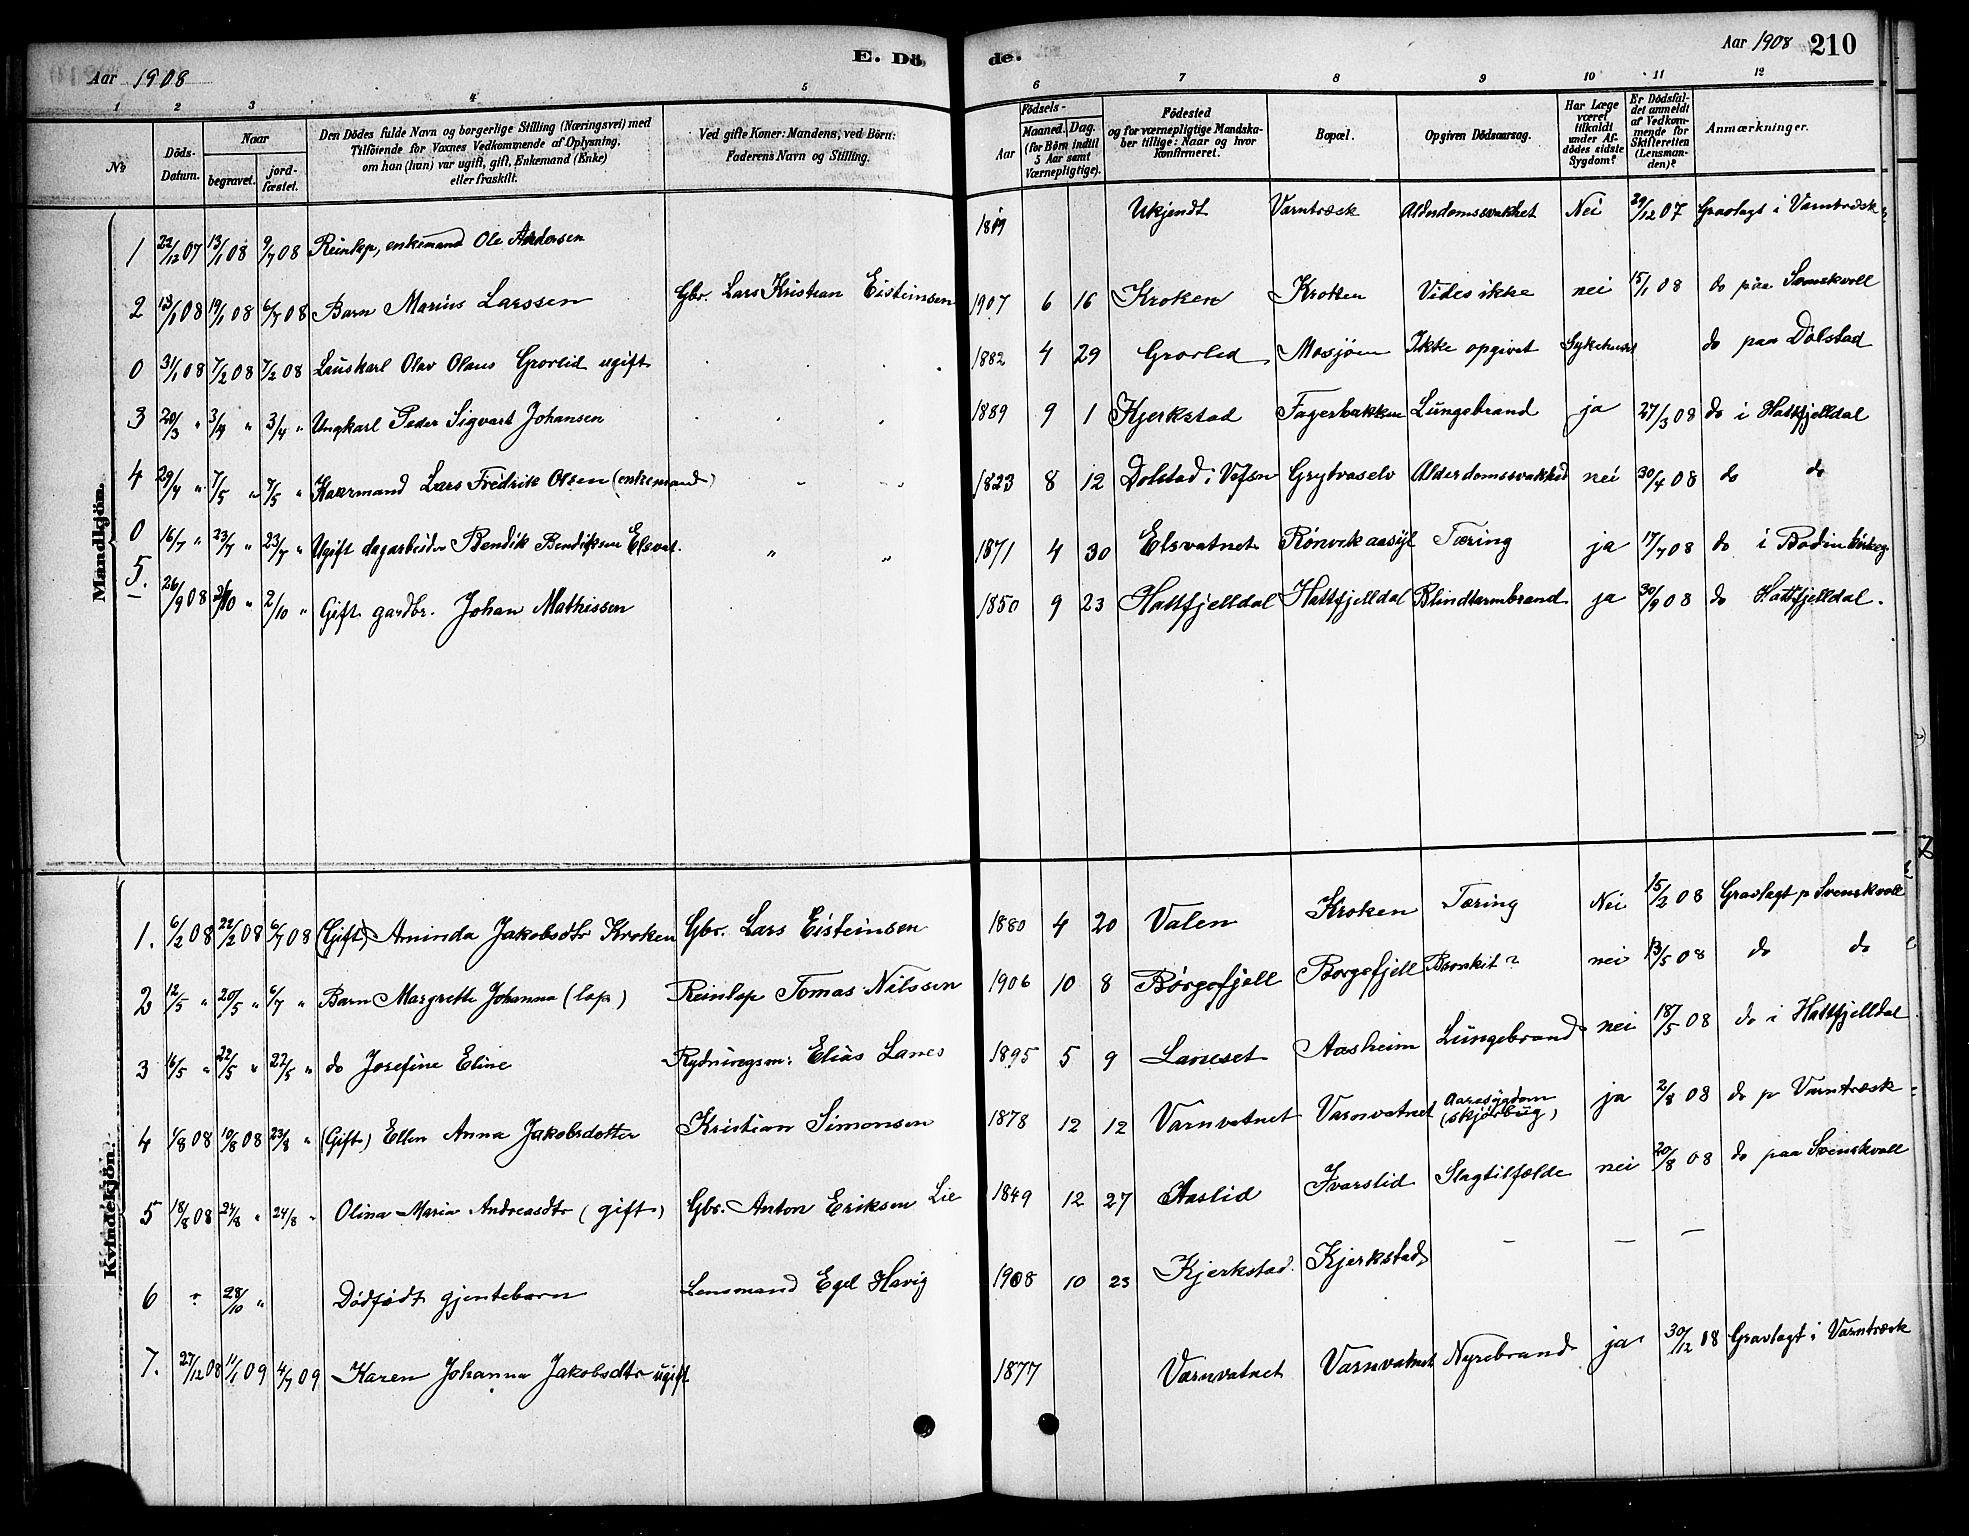 E. Döde.
Aar 1908
Aar 1908 210
1 2 3 4 5 6 7 8 9 10 11 12
No
Döds-Datum.
Naar begravet. jordfæstet.
Den Dödes fulde Navn og borgerlige Stilling (Næringsvei) med Tilföiende for Voxnes Vedkommende af Oplysning, om han (hun) var ugift, gift, Enkemand (Enke) eller fraskilt.
Ved gifte Koner: Mandens, ved Börn: Faderens Navn og Stilling.
Födsels- Aar Maaned. Dag. (for Börn indtil 5 Aar samt Værnepligtige).
Födested og for værnepligtige Mandskaber tillige: Naar og hvor konfirmeret.
Bopæl.
Opgiven Dödsaarsag.
Har Læge været tilkaldt under Afdödes sidste Sygdom?
Er Dödsfaldet anmeldt af Vedkommende for Skifteretten (Lensmanden)?
Anmærkninger.
Mandkjön.
1 22/12 07 13/1 08 9/7 08 Reinlap, enkemand Ole Andersen 1819 Ukjendt Varntræsk Alderdomssvakhet Nei 29/12 07 Gravlagt i Varntræsk
2 13/1 08 19/1 08 6/7 08 Barn Marius Larssen Gbr. Lars Kristian Eisteinsen 1907 6 16 Kroken Kroken Vides ikke nei 15/1 08 do paa Svenskvoll
0 31/1 08 7/2 08 7/2 08 Lauskarl Olav Olaus Grovlid ugift 1882 4 29 Grovlid Mosjøen Ikke opgivet Sykehuset do paa Dolstad
3 20/3 " 3/4 " 3/4 " Ungkarl Peder Sigvart Johansen 1889 9 1 Kjerkstad Fagerbakken Lungebrand ja 27/3 08 do i Hatfjelldal
4 29/4 " 7/5 " 7/5 " Kaarmand Lars Fredrik Olsen (enkemand) 1823 8 12 Dolstad i Vefsn Grytvaselv Alderdomssvakhed nei 30/4 08 do do
0 16/7 " 23/7 " 23/7 " Ugift dagarbeider Bendik Bendiksen Elsvat. " " 1871 4 30 Elsvatnet Rønvik aasyl Tæring ja 17/7 08 do i Bodin kirkeg.
5. 26/9 08 2/10 " 2/10 " Gift gardbr. Johan Mathissen 1850 9 23 Hattfjelldal Hattfjelldal Blindtarmbrand ja 30/9 08 do Hattfjelldal.
Kvindekjön.
1. 6/2 08 22/2 08 6/7 08 (Gift) Aminda Jakobsdtr Kroken Gbr. Lars Eisteinsen 1880 4 20 Valen Kroken Tæring Nei 15/2 08 Gravlagt p Svenskvoll
2 12/5 " 20/5 " 6/7 " Barn Margrethe Johanna (lap) Reinlap Tomas Nilssen 1906 10 8 Børgefjell Borgefjell Bronkit? nei 13/5 08 do do
3 16/5 " 22/5 " 22/5 " do Josefine Eline Rydningsm: Elias Lanes 1895 5 9 Laneset Aasheim Lungebrand nei 18/5 08 do i Hattfjelldal
4 1/8 08 19/8 08 23/8 " (Gift) Ellen Anna Jakobsdotter Kristian Simonsen 1878 12 12 Varnvatnet Varnvatnet Aaresygdom (skjørbug) ja 2/8 08 do p Varntræsk
5 18/8 08 24/8 " 24/8 " Olina Maria Andreasdtr (gift) Gbr. Anton Eriksen Lie 1849 12 27 Aaslid Ivarslid Slagtilfælde nei 20/8 08 do paa Svenskvoll
6 " 28/10 " Dødfødt gjentebarn Lensmand Egil Havig 1908 10 23 Kjerkstad. Kjerkstad — — —
7. 27/12 08 11/1 09 4/7 09 Karen Johanna Jakobsdtr ugift 1877 Varnvatnet Varnvatnet Nyrebrand ja 30/12 08 Gravlagt i Varntræsk